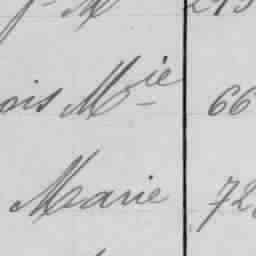 ois Mie 66
Marie 72